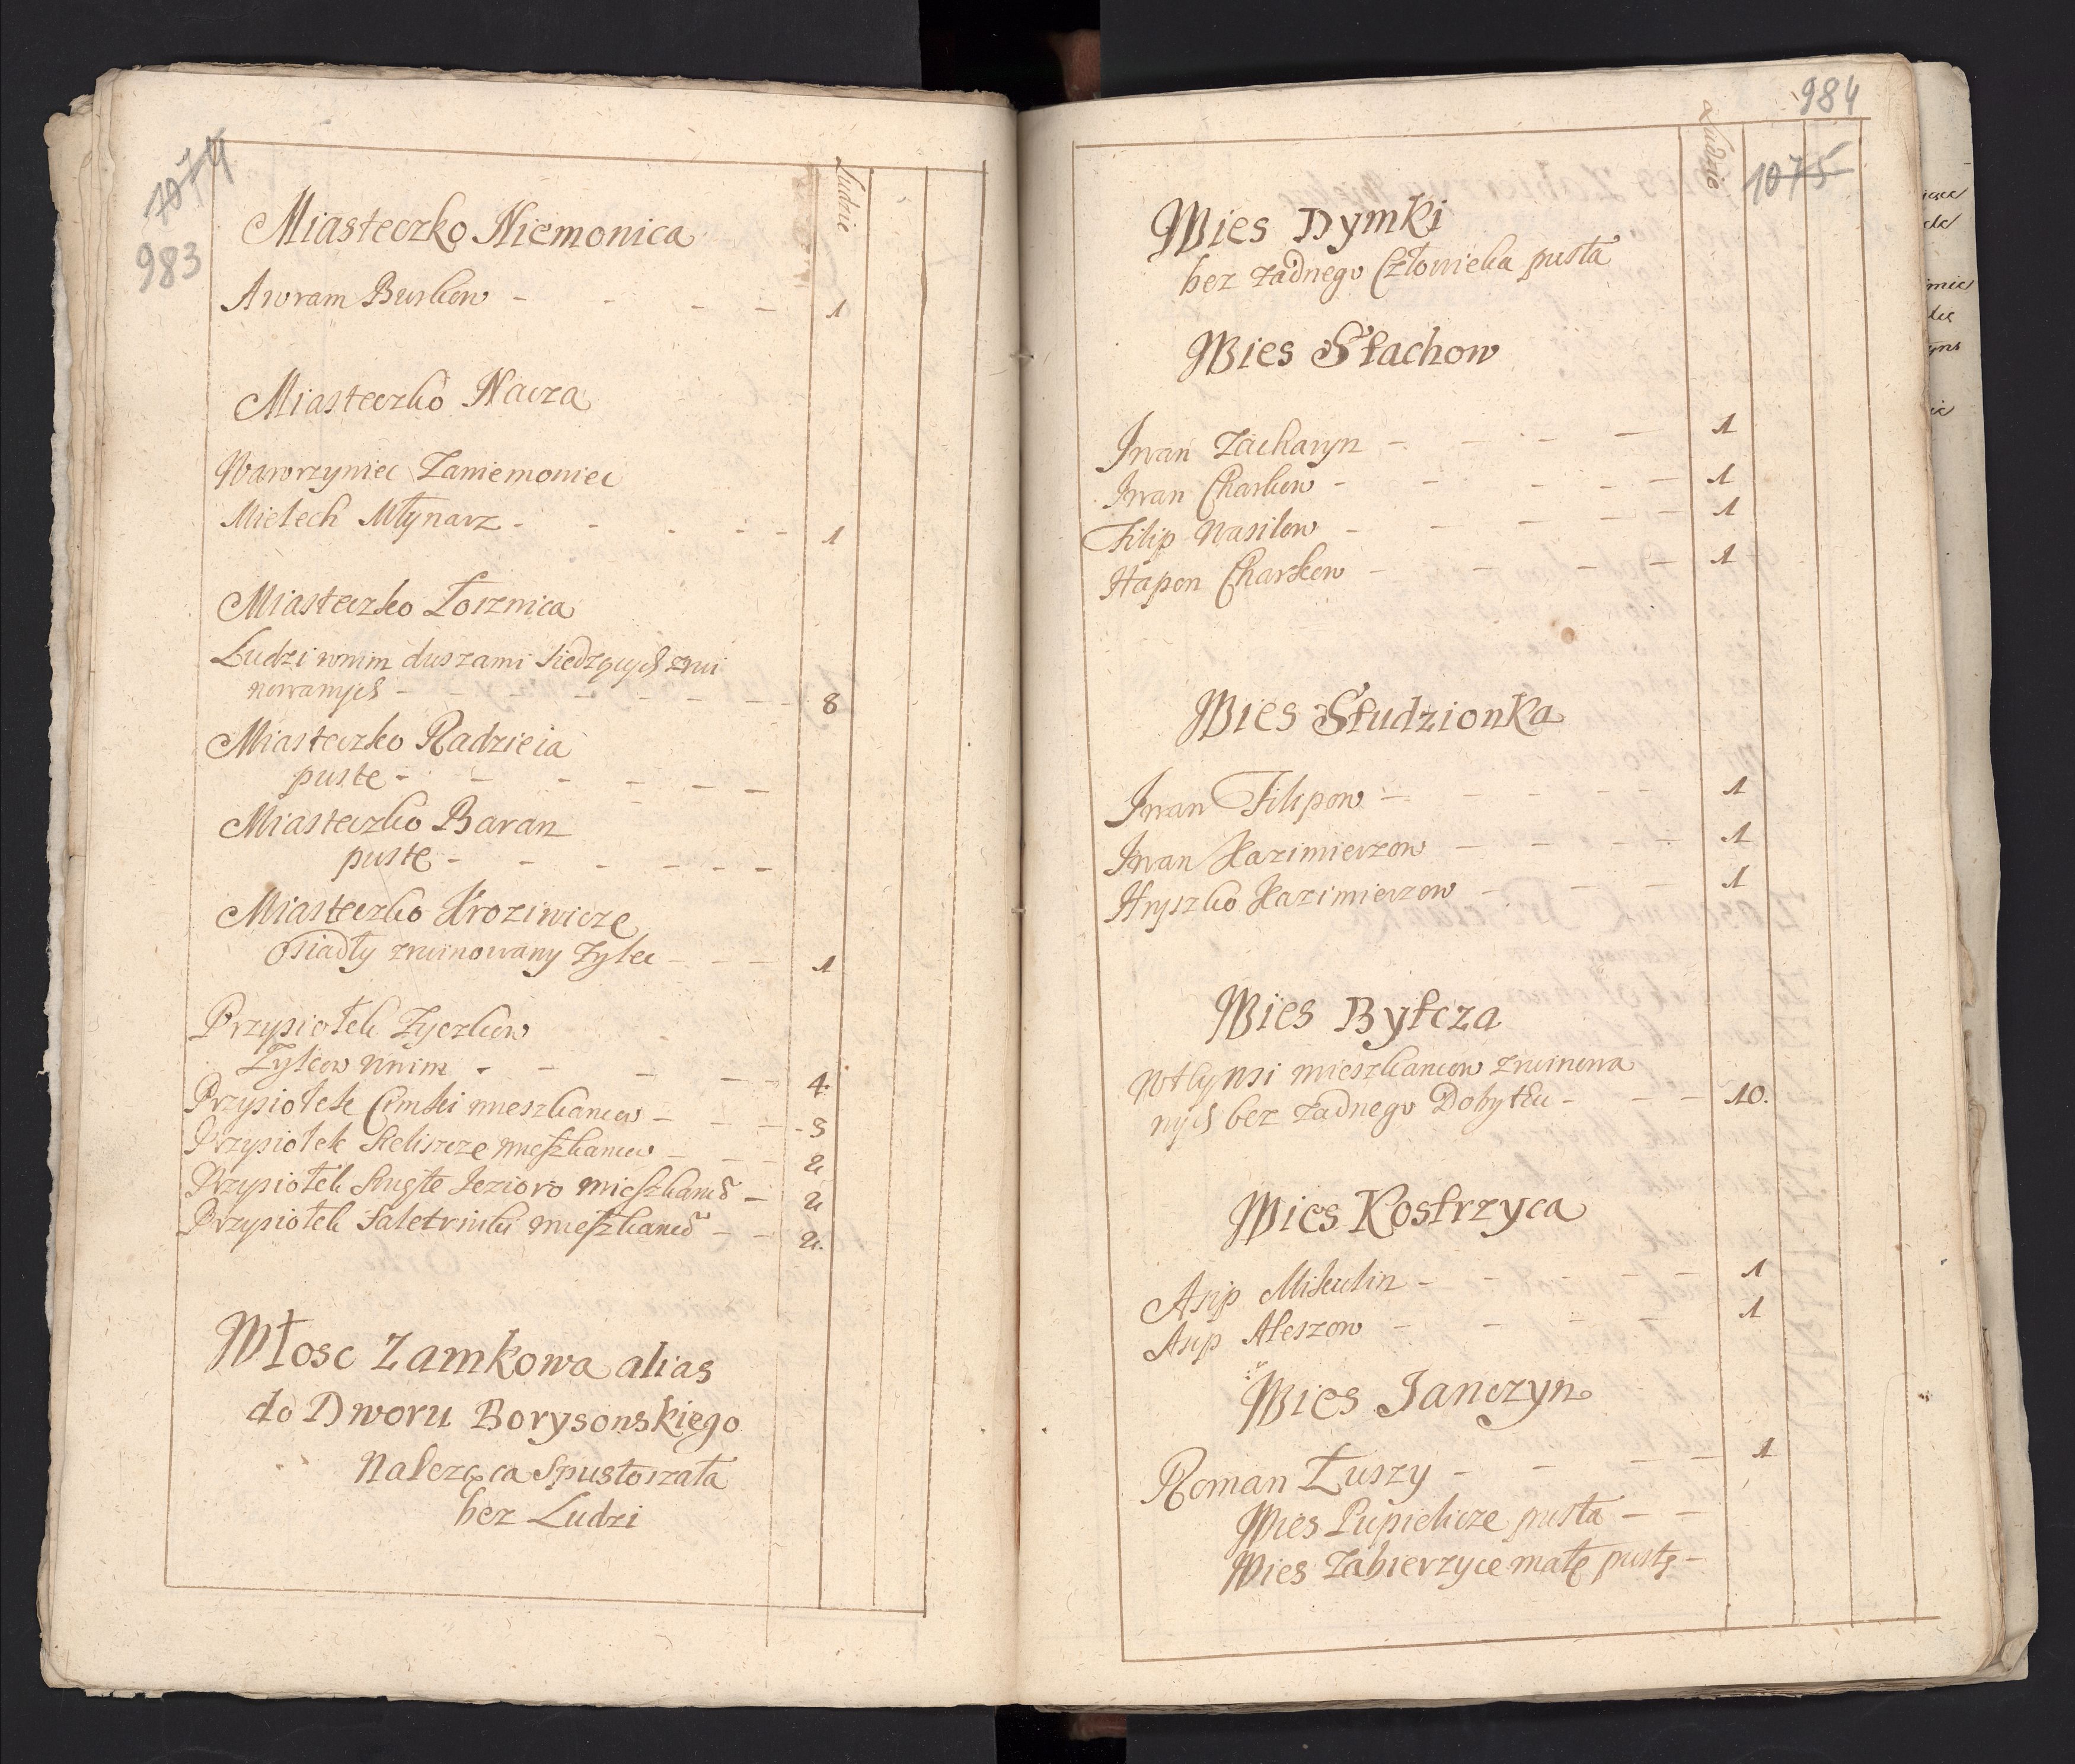 1074
983
Ludzie
Miasteczko Niemonica
Awram Burkow - - - - 1
Miasteczko Nacza
Wawrzyniec Zaniemoniec
Mielech Młynarz - - - - - 1
Miasteczko Łosznica
Ludzi wnim duszami siedzących zrui
nowanych - - - - - - - 8
Miasteczko Radzieia
puste - - - - - -
Miasteczko Baran
puste - - - - - -
Miasteczko Kroziwicze
Osiadły zruinowany Zylec - - - 1
Przysiołek Zyczkow
Zylcow wnim - - - - - 4.
Przysiołek Cimki mieszkancow - - - - 3
Przysiołek Keliszcze mieszkancow - - - 2
Przysiołek Jezioro mieszkancow - 2
Przysiołek Saletriniki mieszkancow - - 2.
Włosc Zamkowa alias
do Dworu Borysowskiego
Naleząca Spustoszała
bez Ludzi
984
1075
Ludzie
Wies Dymki
bez zadnego Człowieka pusta
Wies Stachow
Jwan Zacharyn - - - - 1
Jwan Charkow - - - - - 1
Filip Wasilow - - - - - 1
Hapon Charkow - - - - 1
Wies Studzionka
Jwan Filipow - - - - - 1
Jwan Kazimierzow - - - - - 1
Hryszko Kazimierzow - - - 1
Wies Bytcza
Wtey Wsi mieszkancow zruinowa
nych bez zadnego Dobytku - - - 10.
Wies Kostrzyca
Asip Mikulin - - - - - - 1
Asip Aleszow - - - - 1
Wies Janczyn
Roman Łuszy - - - - 1
Wies Pupielicze pusta - -
Wies Zabierzyce małe puste -